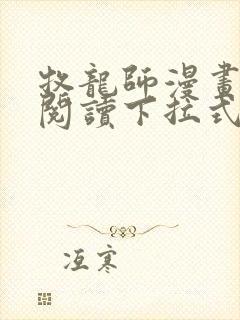 牧龍師漫畫
閱讀下拉式
冱寒